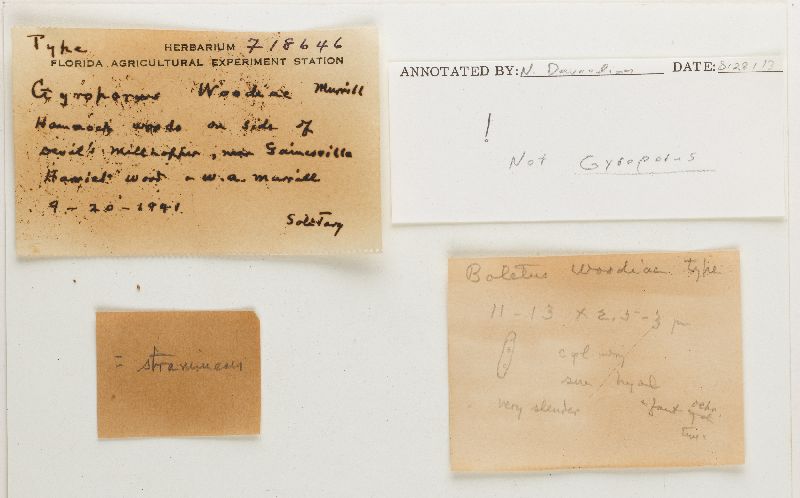 Type HERBARIUM 718646
FLORIDA AGRICULTURAL EXPERIMENT STATION
Gyroporus Woodiae Murrill
Hammock woods on side of
Devil's Millhopper, near Gainesville
Harriet Wood & W.A. Murrill
9-20-1941
Solitary
ANNOTATED BY: N. Davoodian DATE: 3/28/13
!
Not Gyroporus
= stramineum
Boletus Woodiae type
11-13 x 2.5-3 µ
cyl
hyal
very slender